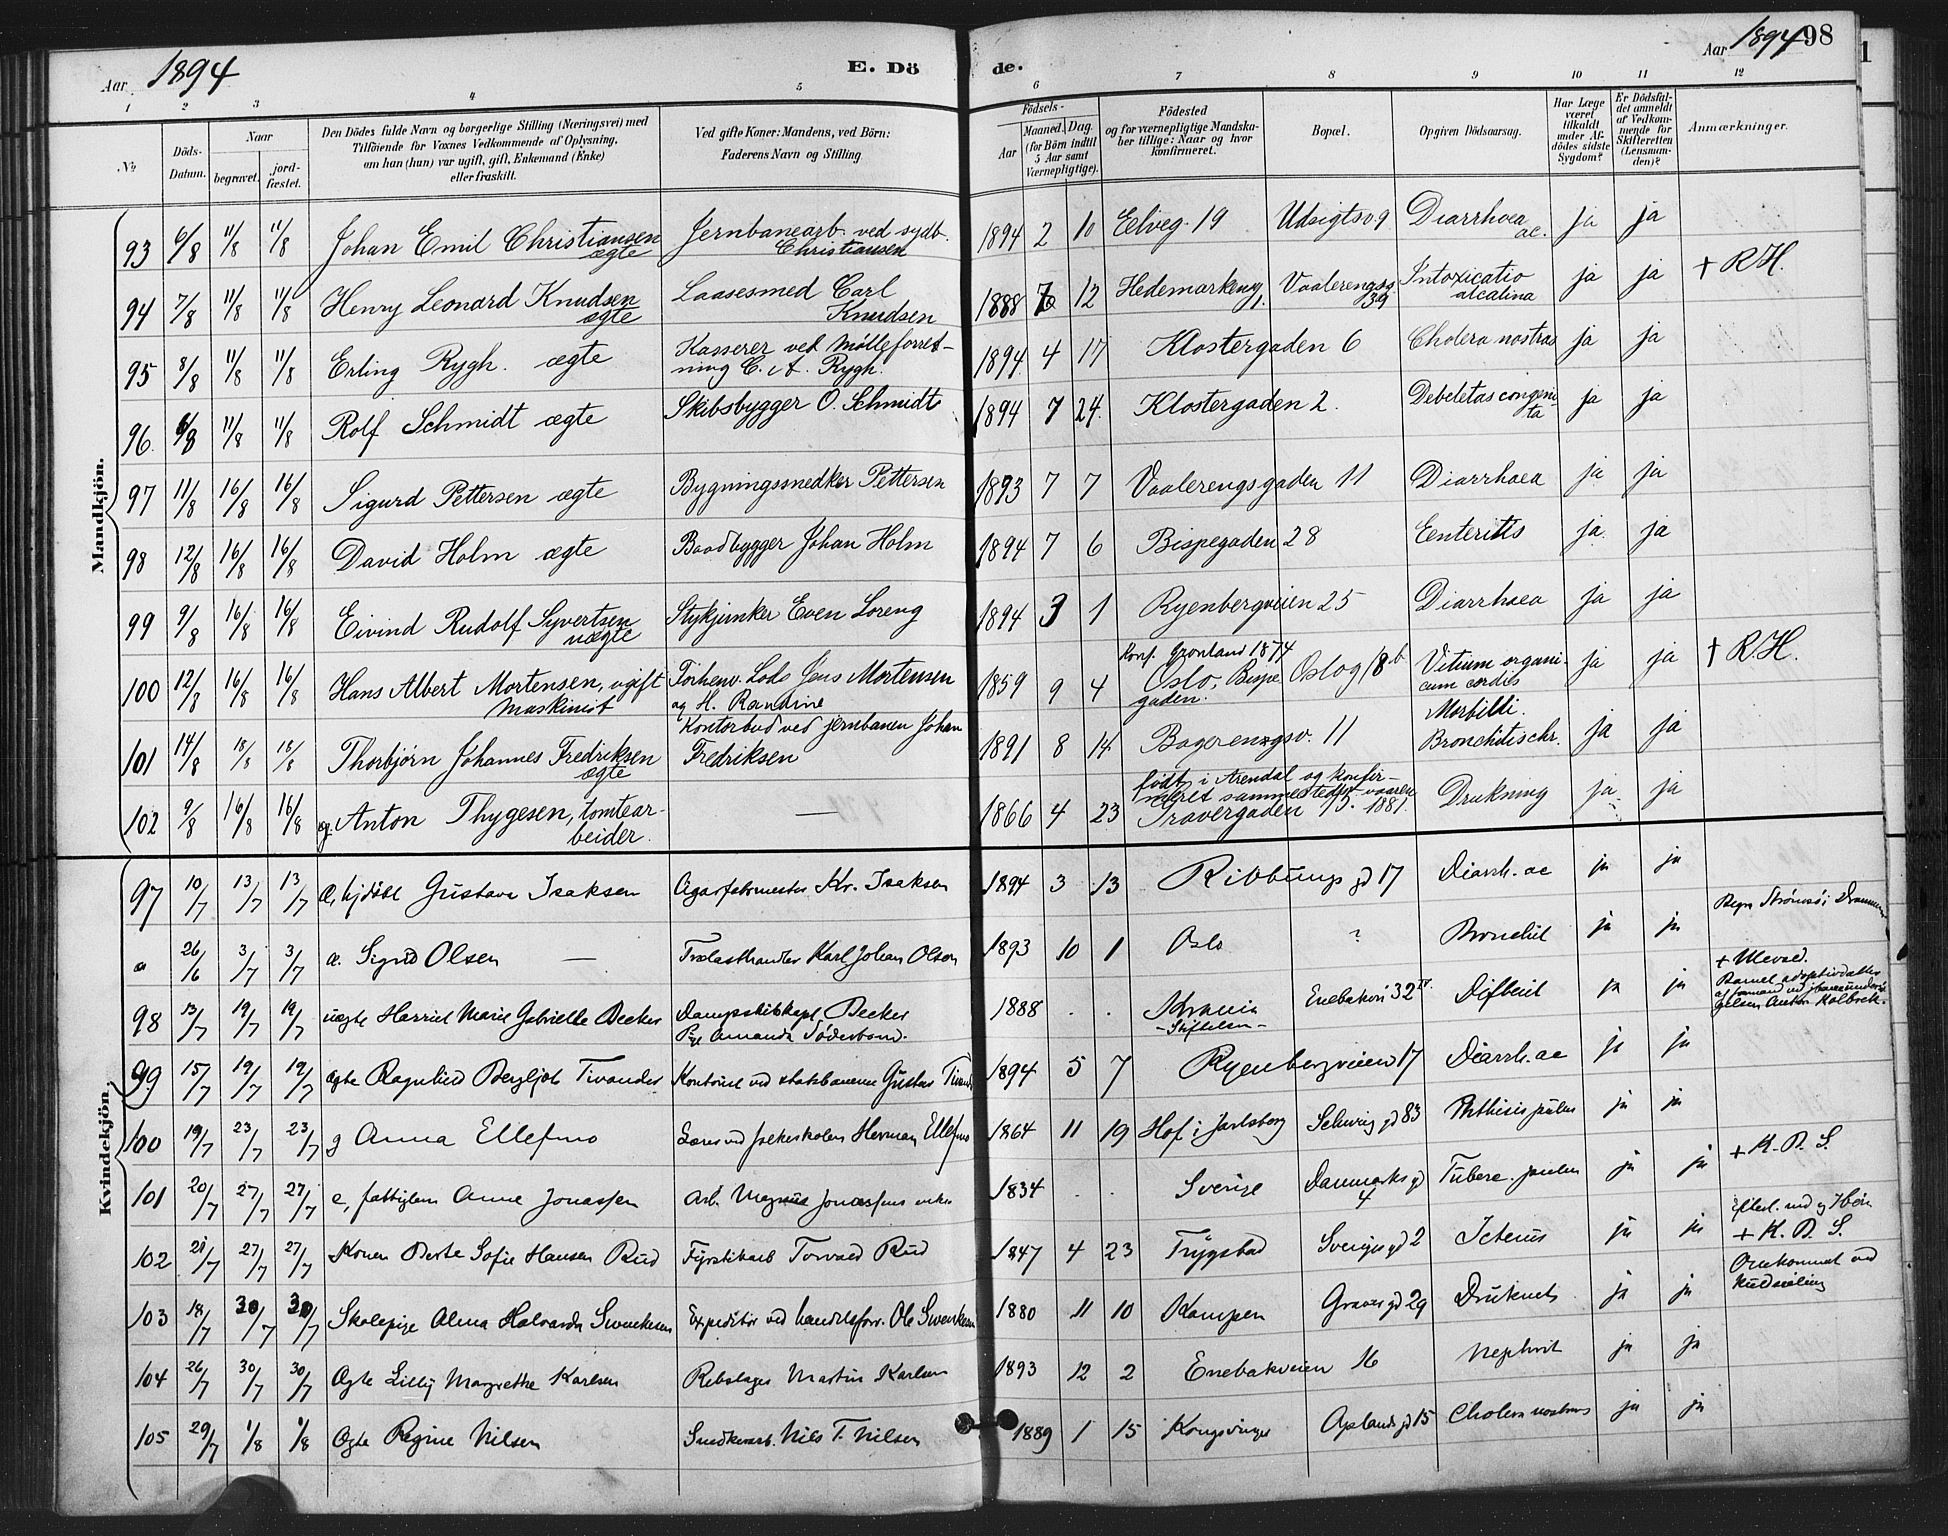 Aar 1894
E. Dö de.
Aar 1894 98
1 2 3 4 5 6 7 8 9 10 11 12
№
Döds-Datum.
Naar
begravet.
jord-fæstet.
Den Dödes fulde Navn og borgerlige Stilling (Næringsvei) med
Tilföiende for Voxnes Vedkommende af Oplysning,
om han (hun) var ugift, gift, Enkemand (Enke)
eller fraskilt.
Ved gifte Koner: Mandens, ved Börn:
Faderens Navn og Stilling
Födsels-
Aar
Maaned. Dag.
(for Börn indtil
5 Aar samt
Værnepligtige).
Födested
og for værnepligtige Mandska-
ber tillige: Naar og hvor
konfirmeret.
Bopæl.
Opgiven Dödsaarsag.
Har Læge
været
tilkaldt
under Af-
dödes sidste
Sygdom?
Er Dödsfal-
det anmeldt
af Vedkom-
mende for
Skifteretten
(Lensman-
den)?
Anmærkninger.
Mandkjön.
93 6/8 11/8 11/8 Johan Emil Christiansen ægte Jernbanearb. ved sydb. Christiansen 1894 2 10 Eelveg. 19 Udsigtsv. 9 Diarrhoea ac. ja ja
94 7/8 11/8 11/8 Henry Leonard Knudsen ægte Laasesmed Carl Knudsen 1888 12 Hedemarkeng. 1. Vaalerengsg 39 Intoxicatio alcalina ja ja + R.H.
95 8/8 11/8 11/8 Erling Rygh. ægte Kasserer ved Mölleforret-ning C. A. Rygh. 1894 4 17 Klostergaden 6 Cholera nostras ja ja
96 6/8 11/8 11/8 Rolf Schmidt ægte Skibsbygger O. Schmidt 1894 7 24. Klostergaden 2. Debeletas congeni-ta ja ja
97 11/8 16/8 16/8 Sigurd Pettersen ægte Bygningssnedker Pettersen 1893 7 7 Vaalerengsgaden 11 Diarrhoea ja ja
98 12/8 16/8 16/8 David Holm ægte Baadbygger Johan Holm 1894 7 6 Bispegaden 28 Eenteritis ja. ja
99 9/8 16/8 16/8 Eivind Rudolf Syvertsen uægte Stykjunker Even Loreng 1894 3 1 Ryenbergveien 25 Diarrhoea ja ja
100 12/8 16/8 16/8 Hans Albert Mortensen, ugift Maskinist Forhenv. Lods Jens Mortensen og H. Randine 1859 9 4 Konf. Grønland 1874 Oslo, Bispe gaden. Oslog 18 b Vitium organi-cum cordis ja ja + R.H.
101 14/8 18/8 18/8 Thorbjørn Johannes Fredriksen ægte Kontorbud ved jernbanen Johan Fredriksen 1891 8 14 Bogerengsv. 11 Morbilli. Bronchitis chr. ja ja
102 9/8 16/8 16/8 g. Anton Thygesen, tomtear-beider. — 1866 4 23 født i Arendal og konfir-meret sammested vaaren 1881. Travergaden 15. Drukning ja ja
Kvindekjön.
97 10/7 13/7 13/7 Gustava Isaksen Kr. Isaksen 1894 3 13 Ribbungs gd 17 Diarrh. ac ja ja
a 26/6 3/7 3/7 æ. Sigrid Olsen — Trælasthandler Karl Johan Olsen 1893 10 1 Oslo ? Bronchit ja ja Begr Strømsö i Drammen
98 13/7 19/7 19/7 uægte Harriet Marie Gabrielle Becker Dampskibskapt. Becker Pige Amanda Söderbom. 1888 . . Krania -Stiftelsen- Enebakvei 32 IV Difterit ja ja + Ulevad. Barnet adoptivdatter Anton Kolbræk.
99 15/7 19/7 19/7 ægte Ragnhild Bergljot Tivander Kontorist ved statsbanerne Gustav 1894 5 7 Ryenbergveien 17 Diarrh. ac ja ja
100 19/7 23/7 23/7 g Anna Ellefmo Lærer ved folkeskolen Herman Ellefmo 1864 11 19 Hof i Jarlsberg Schweigs gd 83 Phthisis pulm ja ja
101 20/7 27/7 27/7 e, fattiglem Anne Jonassen Arb. Magnus Jonassens enke 1834 . . Sverige Danmarks gd 4 Tuberc. pulm ja ja + K. B. S.
102 21/7 27/7 27/7 Konen Berte Sofie Hansen Rud Fyrstikarb Torvald Rud 1847 4 23 Trygstad Sverigs gd 2 Icterus ja ja Efterl. md og 7 børn + K. B. S.
103 18/7 30/7 30/7 Skolepige Alma Halvarda Swenkesen Expeditør ved handelsforr. Ole Swenkesen 1880 11 10 Kampen Graves gd 29 Druknet ja ja Omkommet ved kuldseiling
104 26/7 30/7 30/7 Ægte Lilly Margrethe Karlsen Rebslager Martin Karlsen 1893 12 2 Enebakveien 16 Nephrit ja ja
105 29/7 1/8 1/8 Ægte Regine Nilsen Snedkerarb. Nils T. Nilsen 1889 1 15 Kongsvinger Oplands gd 15 Cholera nostras ja ja